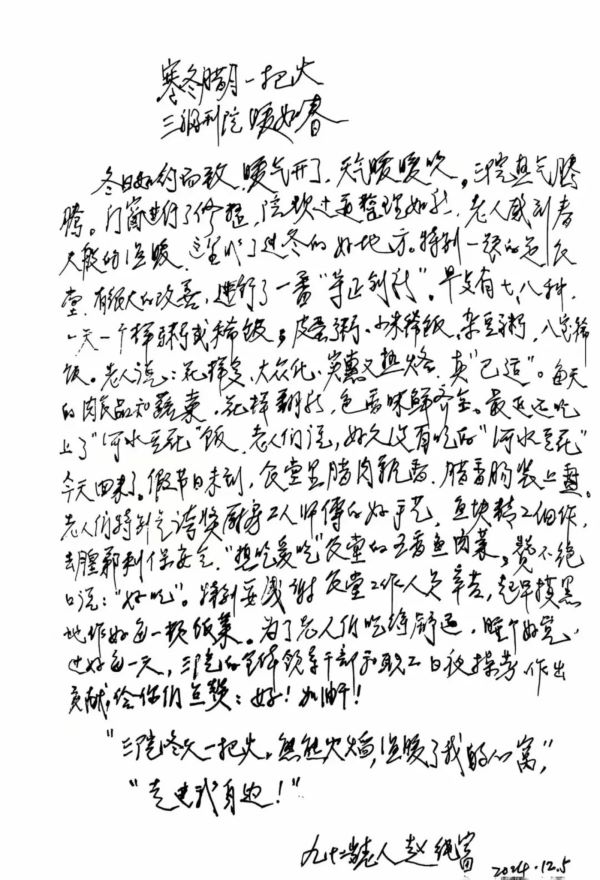 寒冬腊月一把火
三福利院暖如春
冬日如约而致,暖气开了,天气暖暖哄,三院热气腾
腾。门窗进行了修整,院坎过道整理如新,老人感到春
天般的温暖,这里成了过冬的好地方。特别一提的是食
堂,有很大的改善,进行了一番“守正创新”。早点有七、八种,
一天一个样粥或稀饭;皮蛋粥、小米稀饭、杂豆粥、八宝稀
饭。老人说:花样多、大众化、实惠又热烙,真“已适”。每天
的肉食品和蔬菜,花样翻新,色香味鲜齐全。最近还吃
上了“河水豆花”饭,老人们说,好久没有吃的“河水豆花”
今天回来了。假节日未到,食堂里腊肉飘香,腊香肠装上盘。
老人们特别是夸奖厨房工人师傅的好手艺,鱼块精工细作,
去腥剃刺保安全,“想吃爱吃”食堂的五香鱼肉菜,赞不绝
口说:“好吃”。特别要感谢食堂工作人员辛苦,起早摸黑
地作好每一顿饭菜。为了老人们吃得舒适,睡个好觉,
过好每一天,三院的全体领导干部和职工日夜操劳作出
贡献,给你们点赞:好!加油干!
“三院冬天一把火,熊熊火焰,温暖了我的心窝,”
“走进我身边!”
九十二岁老人 赵 富 2024.12.5